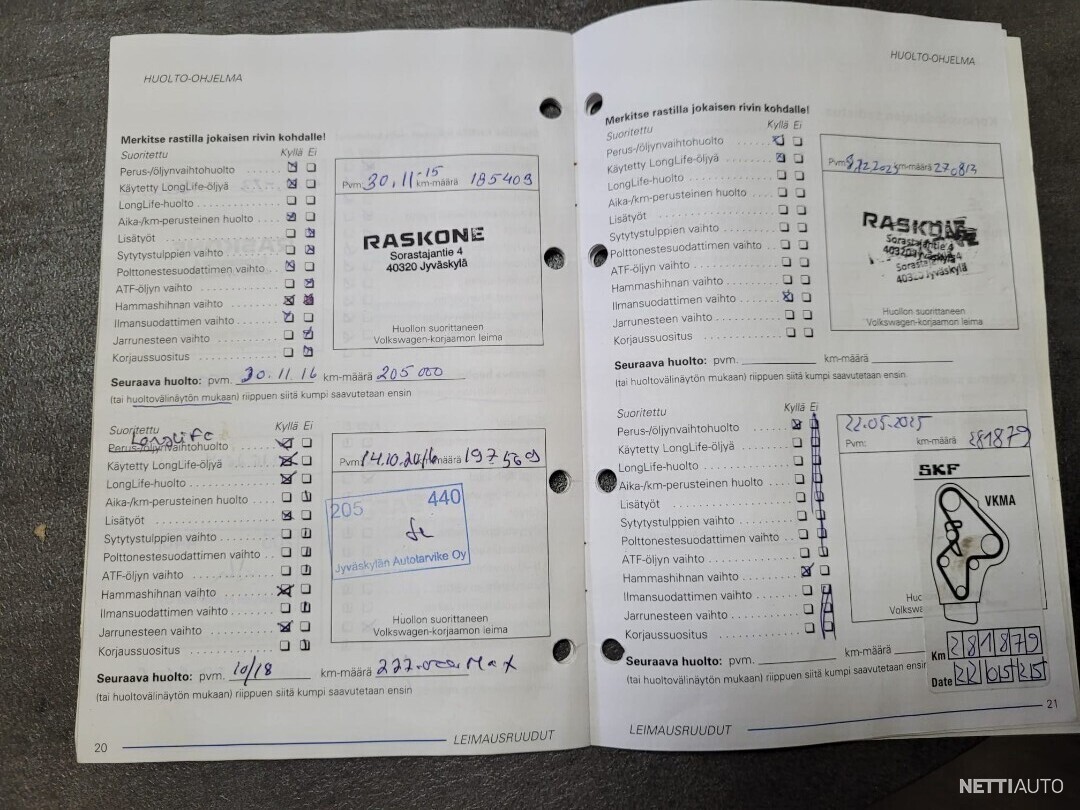 HUOLTO-OHJELMA
Merkitse rastilla jokaisen rivin kohdalle!
Suoritettu Kyllä Ei
Perus-/öljynvaihtohuolto
Käytetty LongLife-öljyä
LongLife-huolto
Aika-/km-perusteinen huolto
Lisätyöt
Sytytystulppien vaihto
Polttonestesuodattimen vaihto
ATF-öljyn vaihto
Hammashihnan vaihto
Ilmansuodattimen vaihto
Jarrunesteen vaihto
Korjaussuositus
Pvm. 30.11-15 km-määrä 185409
RASKONE
Sorastajantie 4
40320 Jyväskylä
Huollon suorittaneen
Volkswagen-korjaamon leima
Seuraava huolto: pvm. 30.11 16 km-määrä 205 000
(tai huoltovälinäytön mukaan) riippuen siitä kumpi saavutetaan ensin
Suoritettu Kyllä Ei
LongLife
Perus-/öljynvaihtohuolto
Käytetty LongLife-öljyä
LongLife-huolto
Aika-/km-perusteinen huolto
Lisätyöt
Sytytystulppien vaihto
Polttonestesuodattimen vaihto
ATF-öljyn vaihto
Hammashihnan vaihto
Ilmansuodattimen vaihto
Jarrunesteen vaihto
Korjaussuositus
Pvm. 14.10.2016 km-määrä 197569
205 440
Jyväskylän Autotarvike Oy
Huollon suorittaneen
Volkswagen-korjaamon leima
Seuraava huolto: pvm. 10/18 km-määrä 227.000 Max
(tai huoltovälinäytön mukaan) riippuen siitä kumpi saavutetaan ensin
20 LEIMAUSRUUDUT
HUOLTO-OHJELMA
Merkitse rastilla jokaisen rivin kohdalle!
Suoritettu Kyllä Ei
Perus-/öljynvaihtohuolto
Käytetty LongLife-öljyä
LongLife-huolto
Aika-/km-perusteinen huolto
Lisätyöt
Sytytystulppien vaihto
Polttonestesuodattimen vaihto
ATF-öljyn vaihto
Hammashihnan vaihto
Ilmansuodattimen vaihto
Jarrunesteen vaihto
Korjaussuositus
Pvm. km-määrä 270813
RASKONE
Sorastajantie 4
40320 Jyväskylä
Sorastajantie 4
Jyväskylä
Huollon suorittaneen
Volkswagen-korjaamon leima
Seuraava huolto: pvm. km-määrä
(tai huoltovälinäytön mukaan) riippuen siitä kumpi saavutetaan ensin
Suoritettu Kyllä Ei
Perus-/öljynvaihtohuolto
Käytetty LongLife-öljyä
LongLife-huolto
Aika-/km-perusteinen huolto
Lisätyöt
Sytytystulppien vaihto
Polttonestesuodattimen vaihto
ATF-öljyn vaihto
Hammashihnan vaihto
Ilmansuodattimen vaihto
Jarrunesteen vaihto
Korjaussuositus
22.05.2025
Pvm: km-määrä 281879
SKF
VKMA
Huo
Volkswa
Km 281879
Date 22 05 25
Seuraava huolto: pvm. km-määrä
(tai huoltovälinäytön mukaan) riippuen siitä kumpi saavutetaan ensin
LEIMAUSRUUDUT 21
NETTIAUTO